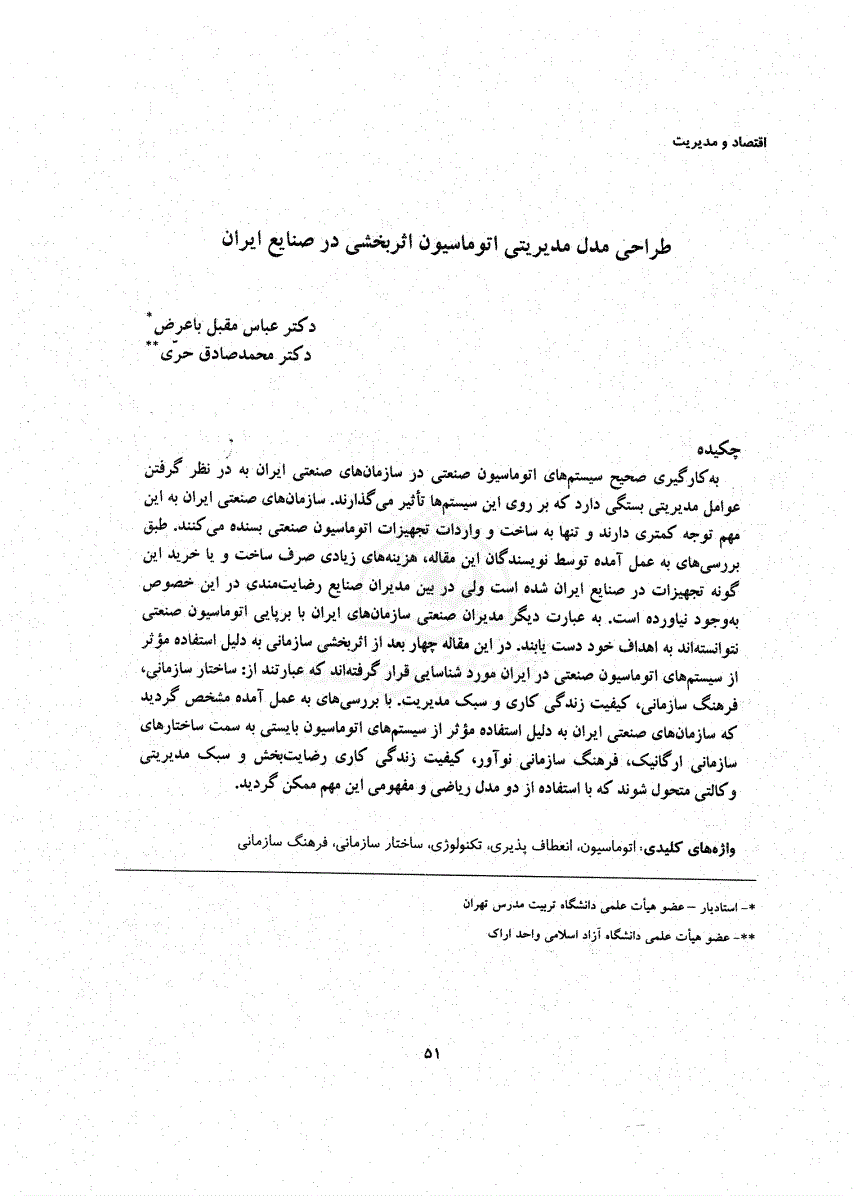 اقتصاد و مدیریت
طراحی مدل مدیریتی اتوماسیون اثربخشی در صنایع ایران
دکتر عباس مقبل باعرض*
دکتر محمدصادق حرّی**
چکیده
به‌کارگیری صحیح سیستم‌های اتوماسیون صنعتی در سازمان‌های صنعتی ایران به در نظر گرفتن
عوامل مدیریتی بستگی دارد که بر روی این سیستم‌ها تأثیر می‌گذارند. سازمان‌های صنعتی ایران به این
مهم توجه کمتری دارند و تنها به ساخت و واردات تجهیزات اتوماسیون صنعتی بسنده می‌کنند. طبق
بررسی‌های به عمل آمده توسط نویسندگان این مقاله، هزینه‌های زیادی صرف ساخت و یا خرید این
گونه تجهیزات در صنایع ایران شده است ولی در بین مدیران صنایع رضایت‌مندی در این خصوص
به‌وجود نیاورده است. به عبارت دیگر مدیران صنعتی سازمان‌های ایران با برپایی اتوماسیون صنعتی
نتوانسته‌اند به اهداف خود دست یابند. در این مقاله چهار بعد از اثربخشی سازمانی به دلیل استفاده مؤثر
از سیستم‌های اتوماسیون صنعتی در ایران مورد شناسایی قرار گرفته‌اند که عبارتند از: ساختار سازمانی،
فرهنگ سازمانی، کیفیت زندگی کاری و سبک مدیریت. با بررسی‌های به عمل آمده مشخص گردید
که سازمان‌های صنعتی ایران به دلیل استفاده مؤثر از سیستم‌های اتوماسیون بایستی به سمت ساختارهای
سازمانی ارگانیک، فرهنگ سازمانی نوآور، کیفیت زندگی کاری رضایت‌بخش و سبک مدیریتی
وکالتی متحول شوند که با استفاده از دو مدل ریاضی و مفهومی این مهم ممکن گردید.
واژه‌های کلیدی: اتوماسیون، انعطاف پذیری، تکنولوژی، ساختار سازمانی، فرهنگ سازمانی
*- استادیار – عضو هیأت علمی دانشگاه تربیت مدرس تهران
**- عضو هیأت علمی دانشگاه آزاد اسلامی واحد اراک
۵۱